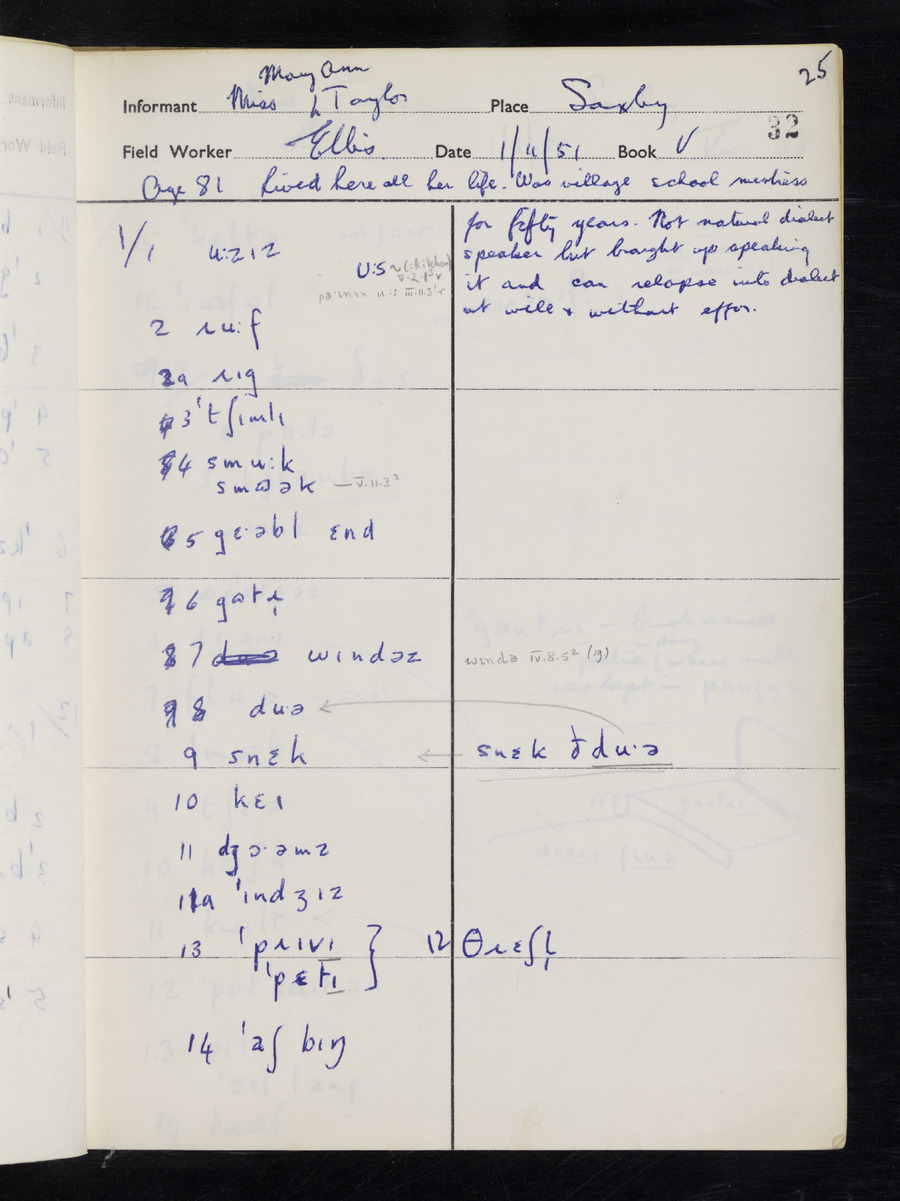 25
Mary Ann
Informant Miss Taylor Place Saxby
32
Field Worker Ellis. Date 1/4/51 Book V
Age 81 Lived here all her life. Was village school mistress
for fifty years. Not natural dialect
speaker but brought up speaking
it and can relapse into dialect
at will & without effor.
1/1 u:zɪz
u:s ~ (:kitchen)
V.2.1³ʳ
u:s III.11.3¹ʳ
2 ɹu:f
2a ɹɪg
3 ˈtʃɪmlɪ
4 smu:k
smʊək — V.11.3³
5 gɛ·əbl ɛnd
6
7 wɪndəz wɪndə IV.8.5² (19)
8 duə ←
9 snɛk ← snɛk ðduˑə
10 kɛɪ
11 dʒɔ·əmz
11a ˈɪndʒɪz
13 ˈpɹɪvɪ } 12 θɹɛʃl̩
ˈpɛtɪ
14 ˈaʃ bɪŋ